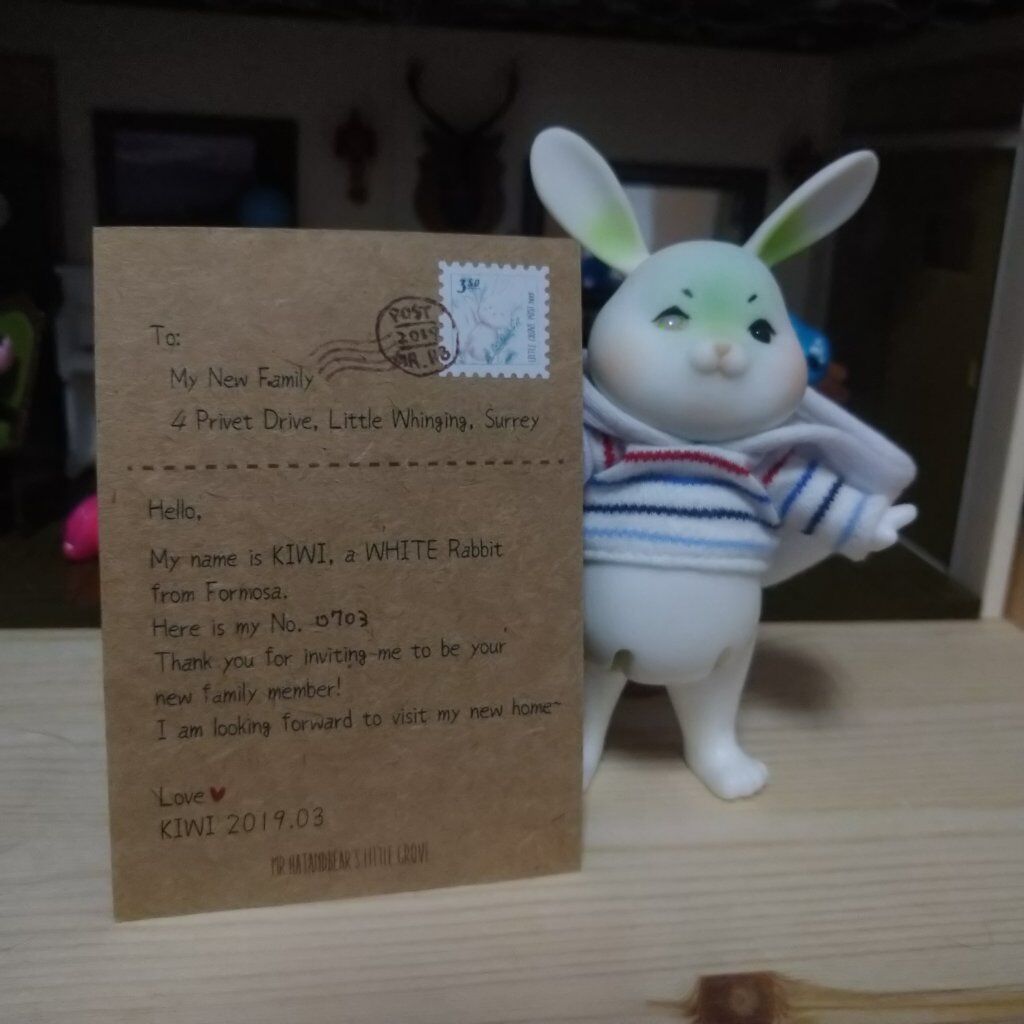 3.50
LITTLE GROVE POST 2019
POST
2019
MAR. 03
To:
My New Family
4 Privet Drive, Little Whinging, Surrey
Hello,
My name is KIWI, a WHITE Rabbit
from Formosa.
Here is my No. 0703
Thank you for inviting me to be your
new family member!
I am looking forward to visit my new home~
Love
KIWI 2019.03
MR.HATANDBEAR'S LITTLE GROVE